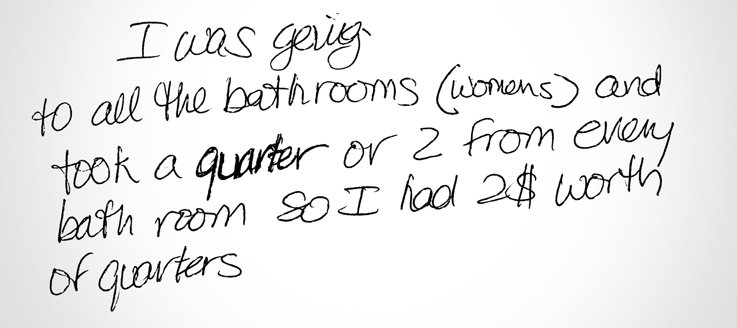 I was going
to all the bathrooms (womens) and
took a quarter or 2 from every
bath room so I had 2$ worth
of quarters